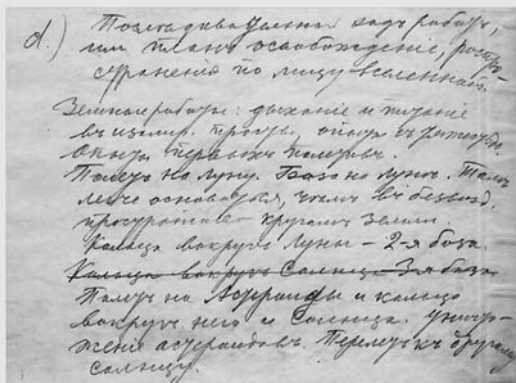 d.) Последовательный ходъ работъ,
или планъ освобожденія, распро-
страненія по лицу вселенной.
Земныя работы: дыханіе и питаніе
въ изолир. простр., опыты
Опыты первыхъ полетовъ.
Полетъ на луну. База на лунѣ. Тамъ
легче основаться, чѣмъ въ безвозд.
пространствѣ кругомъ земли.
Кольца вокругъ Луны – 2-я база.
Кольца вокругъ Солнца 3-я база
Полетъ на Астероиды и кольцо
вокругъ него и Солнца. Уничто-
женіе астероидовъ. Перелетъ къ другому
солнцу.